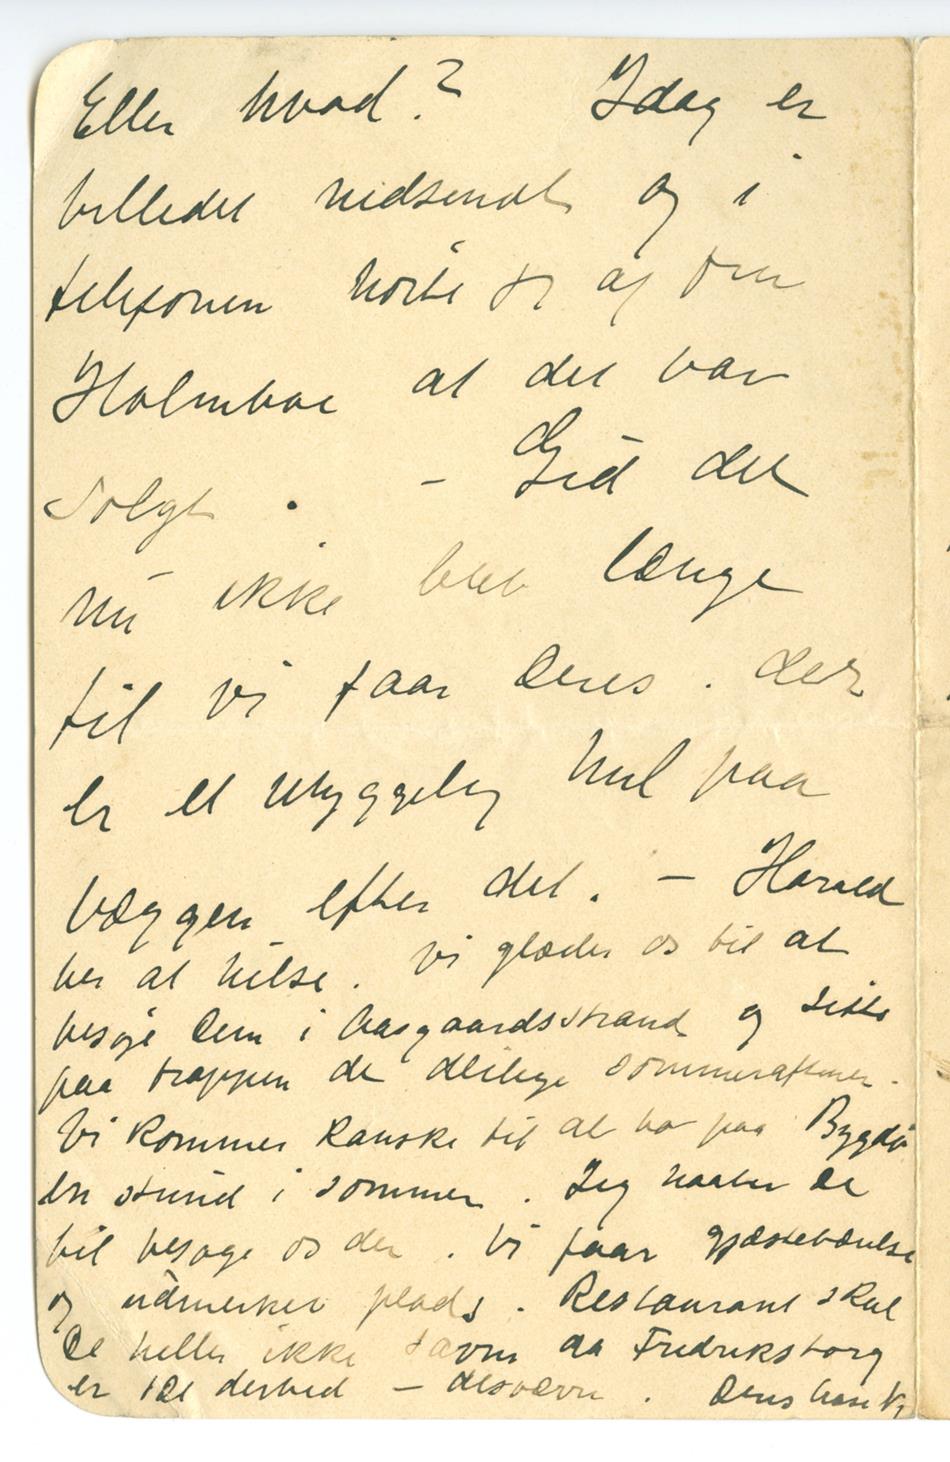 Eller hvad? Idag er
billedet nedsendt og i
telefonen hørte jeg af fru
Holmboe at det var
solgt. – Gid det
nu ikke blev længe
til vi faar Deres. Der
er et uhyggelig hul paa
væggen efter det. – Harald
ber at hilse. Vi glæder os til at
besøge Dem i Aasgaardsstrand og sitte
paa trappen de deilige sommeraftener.
Vi kommer kanske til at bo paa Bygdø
en stund i sommer. Jeg haaber De
vil besøge os der. Vi faar gjesteværelse
og udmerket plads. Restaurant skal
De heller ikke savne da Fredriksborg
er tæt derved – desværre. Deres Aase